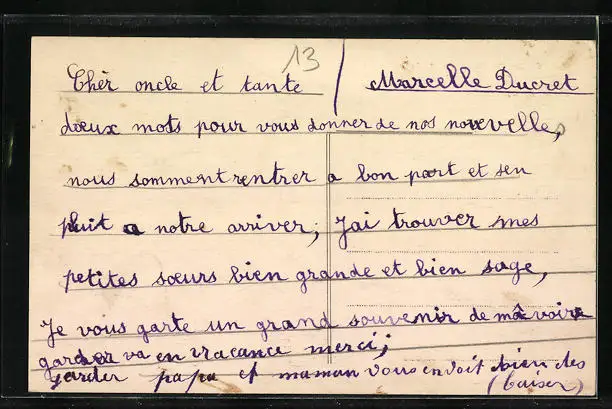 13
Chèr oncle et tante
Marcelle Ducret
deux mots pour vous donner de nos nouvelle,
nous somment rentrer a bon port et sen
pluit a notre arriver; Jai trouver mes
petites sœurs bien grande et bien sage,
Je vous garte un grand souvenir de mâ voire
garder va en vacance merci;
garder papa et maman vous envoit bien des
(baiser)